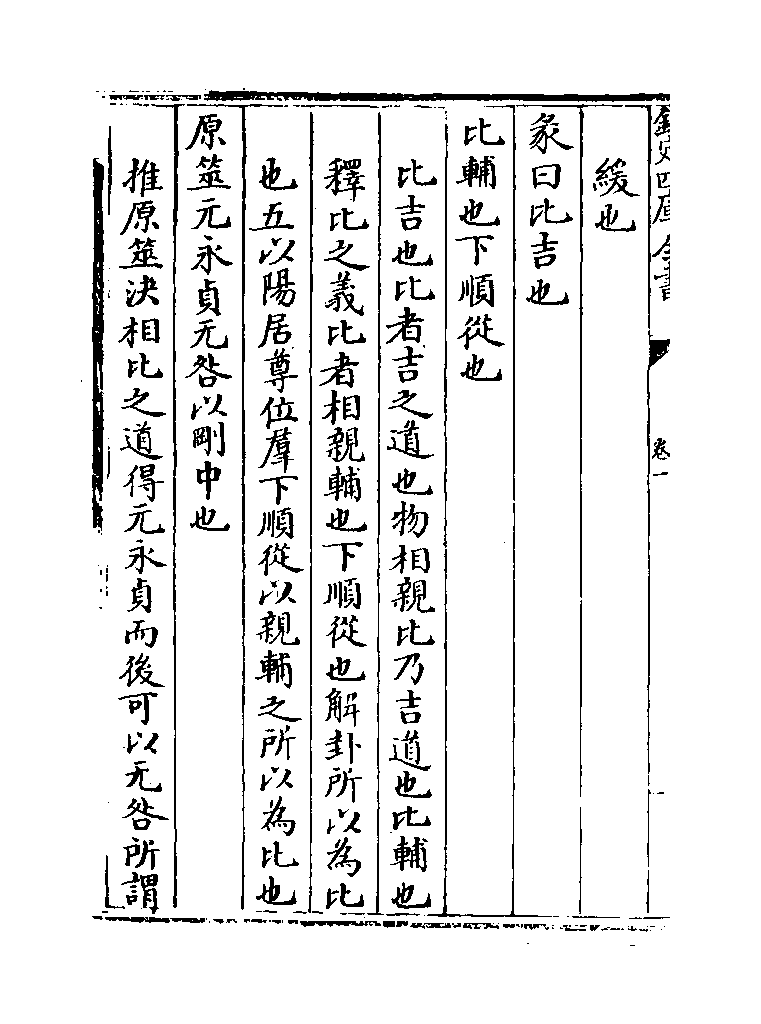 欽定四庫全書
卷一
緩也
彖曰比吉也
比輔也下順從也
比吉也比者吉之道也物相親比乃吉道也比輔也
釋比之義比者相親輔也下順從也解卦所以為比
也五以陽居尊位羣下順從以親輔之所以為比也
原筮元永貞无咎以剛中也
推原筮決相比之道得元永貞而後可以无咎所謂